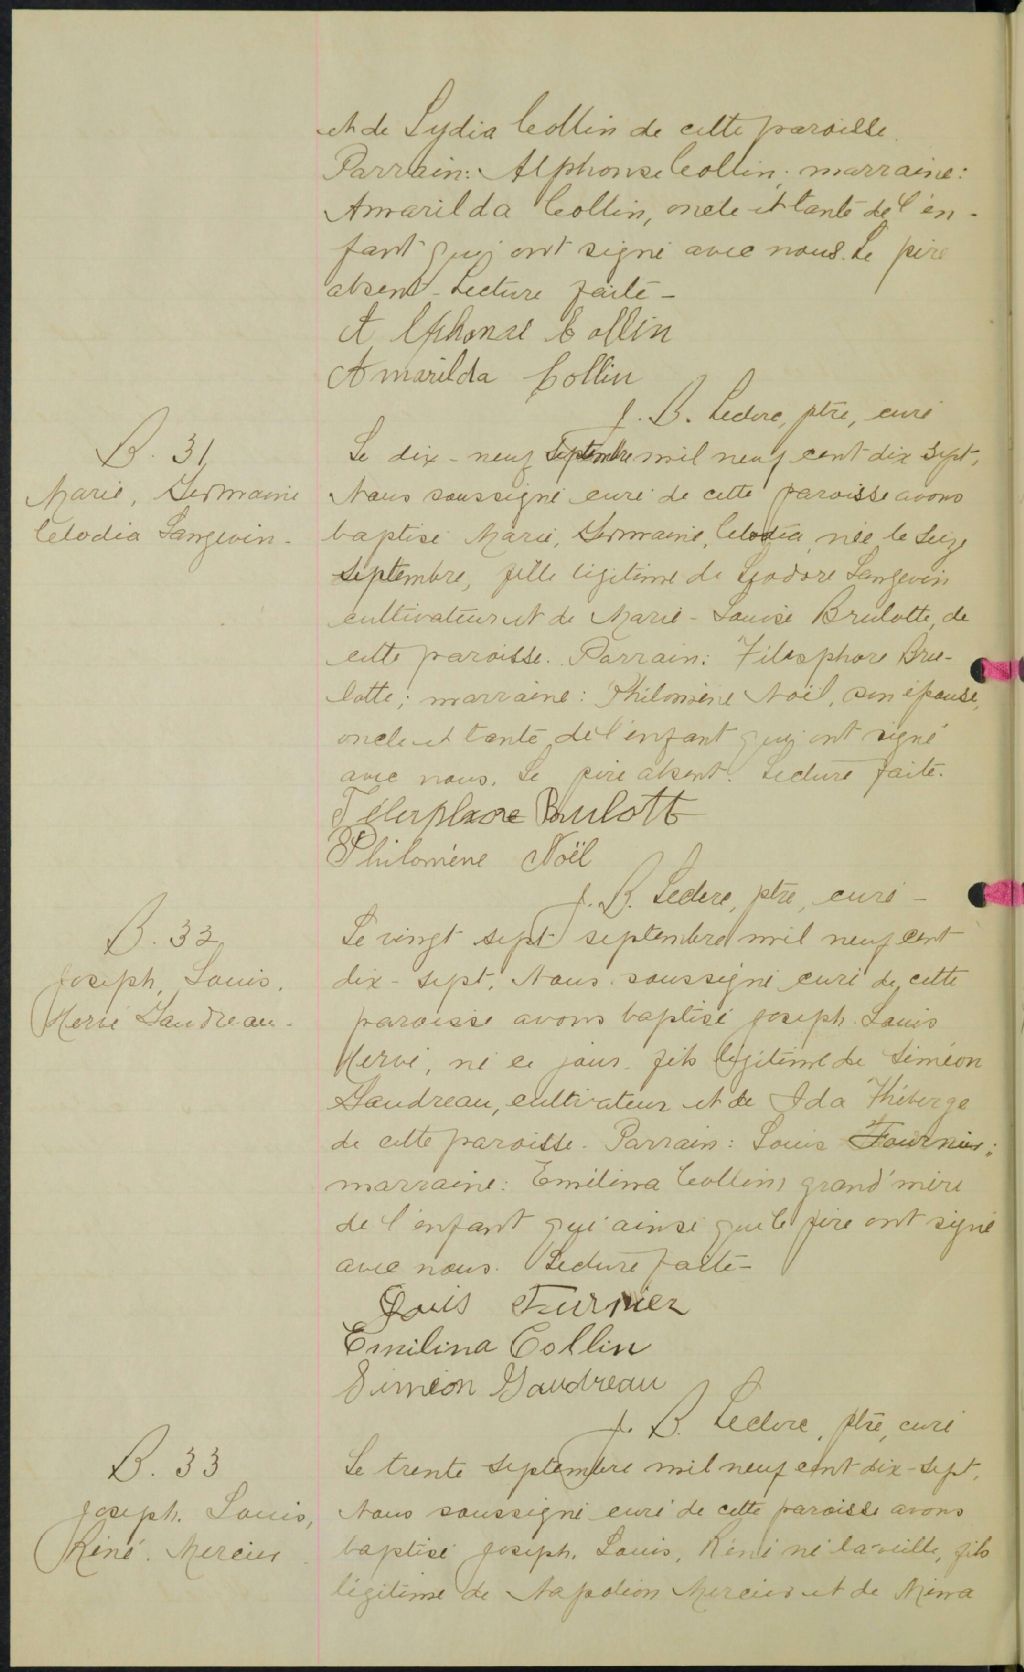 et de Lydia Collin de cette paroisse.
Parrain: Alphonse Collin; marraine:
Amarilda Collin, oncle et tante de l'en-
fant qui ont signé avec nous. Le père
absent. Lecture faite -
Alphonse Collin
Amarilda Collin
J. B. Leclerc, ptre, curé
B. 31
Marie, Germaine
Celodia Langevin.
Le dix-neuf septembre mil neuf cent dix sept,
Nous soussigné curé de cette paroisse avons
baptisé Marie, Germaine, Celodia née le seize
septembre, fille légitime de Isodore Langevin
cultivateur et de Marie-Louise Brulotte, de
cette paroisse. Parrain: Télesphore Bru-
lotte; marraine: Philomène Noël, son épouse,
oncle et tante de l'enfant qui ont signé
avec nous. Le père absent. Lecture faite.
Télesphore Brulott
Philomène Noël
J. B. Leclerc, ptre, curé -
B. 32
Joseph, Louis,
Hervé Gaudreau.
Le vingt sept septembre mil neuf cent
dix-sept, Nous soussigné curé de cette
paroisse avons baptisé Joseph Louis
Hervé, né ce jour, fils légitime de Siméon
Gaudreau, cultivateur et de Ida Théberge
de cette paroisse. Parrain: Louis Fournier;
marraine: Emélina Collin, grand'mère
de l'enfant qui ainsi que le père ont signé
avec nous. Lecture faite -
Louis Furnier
Emilina Collin
Siméon Gaudreau
J. B. Leclerc, ptre, curé
B. 33
Joseph, Louis,
Réné. Mercier
Le trente septembre mil neuf cent dix-sept,
Nous soussigné curé de cette paroisse avons
baptisé Joseph, Louis, Réné né la veille, fils
légitime de Napoléon Mercier et de Mina